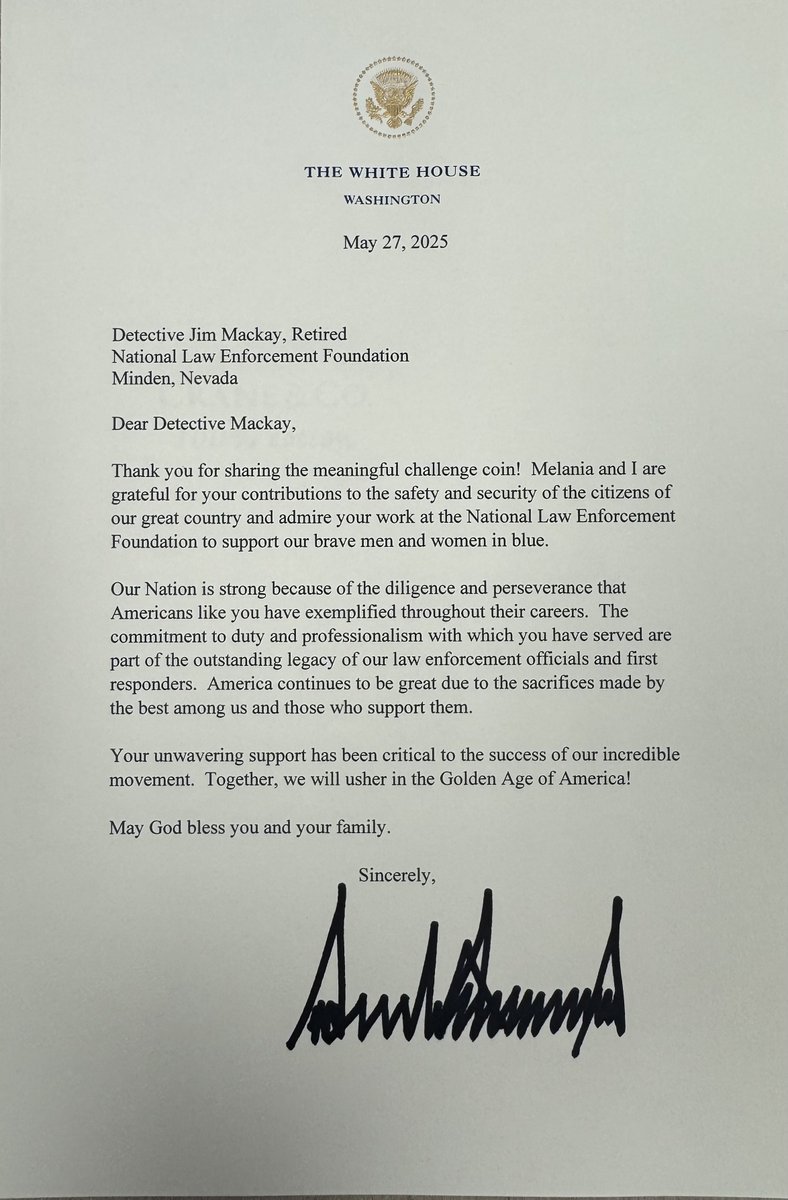 THE WHITE HOUSE
WASHINGTON
May 27, 2025
Detective Jim Mackay, Retired
National Law Enforcement Foundation
Minden, Nevada
Dear Detective Mackay,
Thank you for sharing the meaningful challenge coin!  Melania and I are
grateful for your contributions to the safety and security of the citizens of
our great country and admire your work at the National Law Enforcement
Foundation to support our brave men and women in blue.
Our Nation is strong because of the diligence and perseverance that
Americans like you have exemplified throughout their careers.  The
commitment to duty and professionalism with which you have served are
part of the outstanding legacy of our law enforcement officials and first
responders.  America continues to be great due to the sacrifices made by
the best among us and those who support them.
Your unwavering support has been critical to the success of our incredible
movement.  Together, we will usher in the Golden Age of America!
May God bless you and your family.
Sincerely,